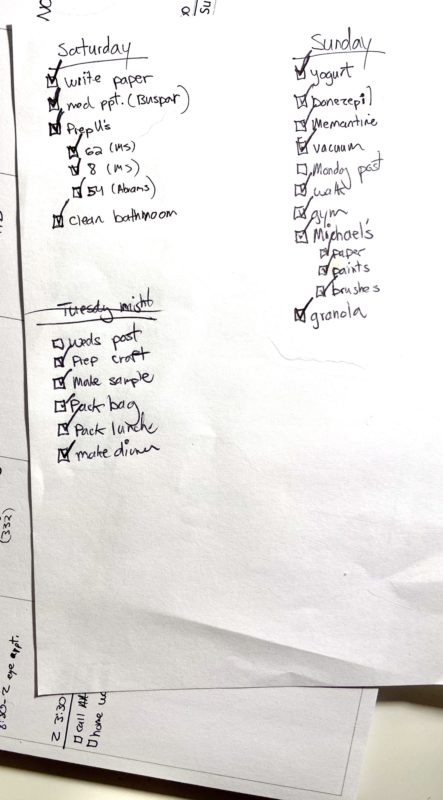 Saturday
write paper
med ppt. (Buspar)
PrepU's
62 (MS)
8 (MS)
54 (Abrams)
clean bathroom
Tuesday night
weds post
Prep craft
make sample
Pack bag
Pack lunch
make dinner
Sunday
yogurt
Donezepil
Memantine
vacuum
Monday post
walk
gym
Michael's
paper
paints
brushes
granola
(332)
8:30-2 eye appt.
2 3:30
call
home
NO